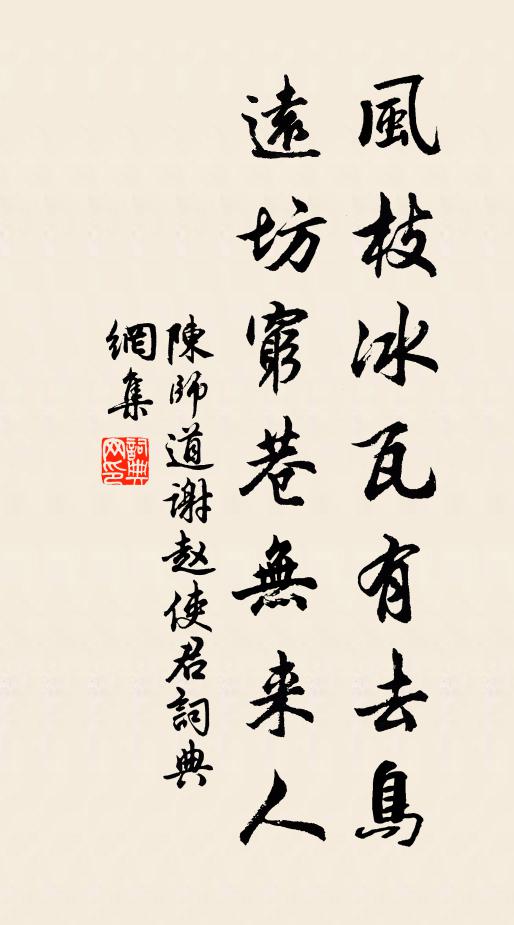 風枝冰瓦有去鳥
遠坊窮巷無来人
陳師道謝赵使君詞典
網集
詞典
网印